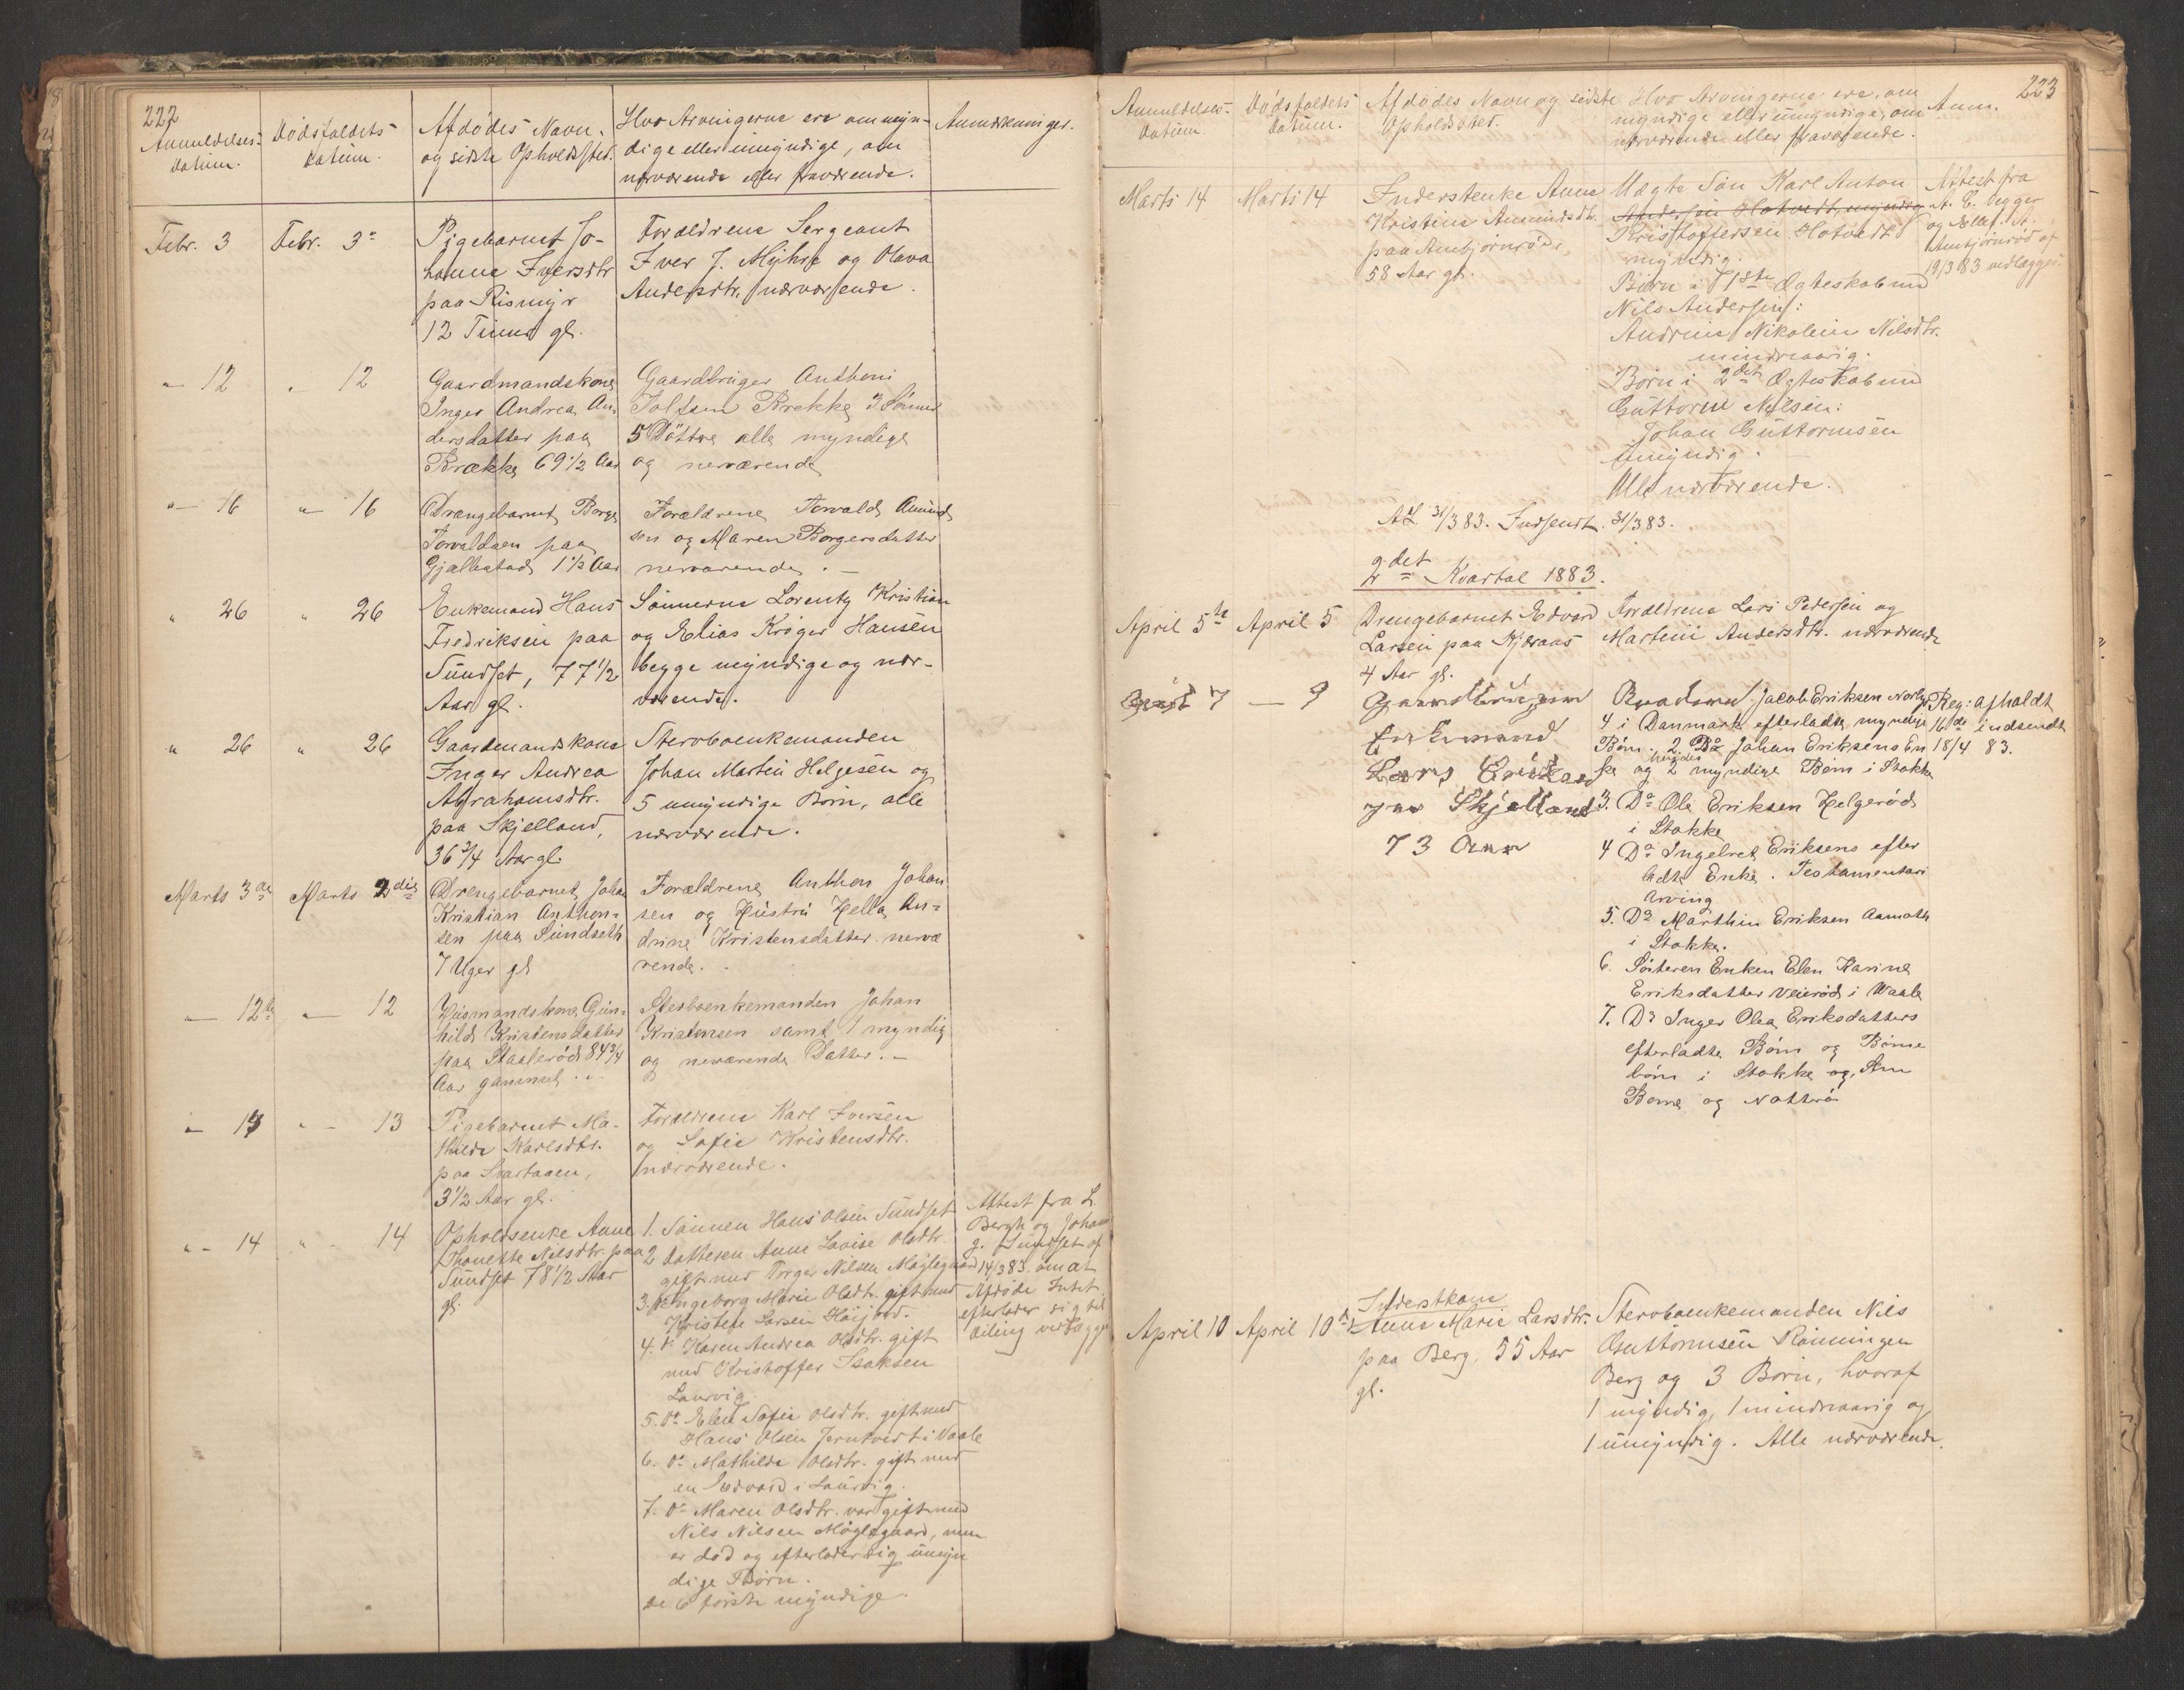 222
Anmeldelses-
datum.
Dødsfaldets
datum.
Afdødes Navn
og sidste Opholdssted.
Hvo Arvingerne ere om myn-
dige eller umyndige, om
nærværende eller fraværende.
Anmærkninger.
Febr. 3
Febr. 3
Pigebarnet Jo-
hanne Iversdtr
paa Rismyr
12 Timer gl.
Forældrene Sergeant
Iver J. Myhre og Olava
Andersdtr. nærværende.
" 12
" 12
Gaardmandskone
Inger Andrea An-
dersdatter paa
Brække 69 1/2 Aar
Gaardbruger Anthoni
Brekke 3 Sønner
5 Døttre alle myndige
og nerværende
" 16
" 16
Drængebarnet Borge
Torvaldsen paa
Gjællestad 1 1/2 Aar
Forældrene Torvald Amund
sen og Maren Borgersdatter
nerværende. -
" 26
" 26
Enkemand Hans
Fredriksen paa
Sundset, 77 1/2
Aar gl.
Sønnerne Lorentz Kristian
og Elias Krøger Hansen
begge myndige og nær-
værende.
" 26
" 26
Gaardmandskone
Inger Andrea
Abrahamsdtr.
paa Skjelland,
36 3/4 Aar gl.
Stervboenkemanden
Johan Martin Helgesen og
5 umyndige Børn, alle
nærværende.
Marts 3de
Marts 2den
Drengebarnet Johan
Kristian Anthon-
sen paa Sundseth
7 Uger gl
Forældrene Anthon Johan
sen og Hustru Hella An-
drine Kristensdatter nervæ
rende.
" 12te
" 12
Husmandskone Gun-
hild Kristensdatter
paa Staalerød 84 3/4
Aar gammel. -
Stesboenkemanden Johan
Kristensen samt 1 myndig
og nerværende Datter. -
" 13
" 13
Pigebarnet Ma-
thilde Karlsdtr.
paa Svartaaen,
3 1/2 Aar gl.
Forældrene Karl Iversen
og Sofie Kristensdtr.
nærværende.
" 14
" 14
Opholdsenke Anne
Thonette Nilsdtr. paa
Sundset 78 1/2 Aar
gl.
1. Sønnen Hans Olsen Sundset
2. Datteren Anne Lovise Olsdtr.
gift med Torger Nilsen Møglegaard
3. Do Ingeborg Marie Olsdtr. gift med
Kristen Larsen Høijord.
4. Do Karen Andrea Olsdtr. gift
med Kristoffer Isaksen
Laurvig.
5. Do Elen Sofie Olsdtr. gift med
Hans Olsen Jerntvedt i Vaale
6. Do Mathilde Olsdtr. gift med
en Edvard i Laurvig.
7. Do Maren Olsdtr. var gift med
Nils Nilsen Møglegaard, men
er død og efterlader sig umyn
dige Børn.
De 6 første myndige.
Attest fra L.
Bergh og Johan
J. Sundset af
14/3 83 om at
Afdøde Intet
efterlader sig til
Deling vedlægges
223
Anmeldelses-
datum.
Dødsfaldets
datum.
Afdødes Navn og sidste
Opholdssted.
Hvo Arvingerne ere, om
myndige eller umyndige, om
nærværende eller fraværende.
Anm.
Marts 14
Marts 14
Inderstenke Anne
Kristine Amundsdtr.
paa Ambjørnrød,
58 Aar gl.
Uægte Søn Karl Anton
Andersen Hotvedt, myndig
Kristoffersen Hotvedt
myndig.
Børn i 1ste Ægteskab med
Nils Andersen:
Andrine Nikoline Nilsdtr.
mindreaarig.
Børn i 2det Ægteskab med
Guttorm Nilsen:
Johan Guttormsen
umyndig.
Alle nærværende.
Attest fra
og
Ambjørnrød af
19/3 83 vedlægges.
31/3 83. Indsendt 31/3 83.
2det Kvartal 1883.
April 5te
April 5
Drengebarnet Edvard
Larsen paa Kjæraas
4 Aar gl.
Forældrene Lars Pedersen og
Martine Andersdtr. nærværende
7
— 9
Gaardbruger
Enkemand
Lars Eriksen
paa Skjelland
73 Aar
Broderen Jacob Eriksen
4 i Danmark efterladte myndige
Børn. 2. Do Johan Eriksens En
ke og hendes 2 myndige Børn i Stokke
3. Do Ole Eriksen Helgerød
i Stokke
4 Do Ingebret Eriksens efter
ladte Enke. Testamentari
Arving
5. Do Marthin Eriksen Aamoth
i Stokke.
6. Søsteren Enken Elen Karine
Eriksdatter Veierød i Waale
7. Do Inger Olea Eriksdatters
efterladte Børn og Børne
børn i Stokke og
og Nøtterø
Reg: afholdt
16de indsendt
18/4 83.
April 10
April 10de
Inderstkone
Anne Marie Larsdtr.
paa Berg, 55 Aar
gl.
Stervboenkemanden Nils
Guttormsen Rønningen
Berg og 3 Børn, hvoraf
1 myndig, 1 mindreaarig og
1 umyndig. Alle nærværende.